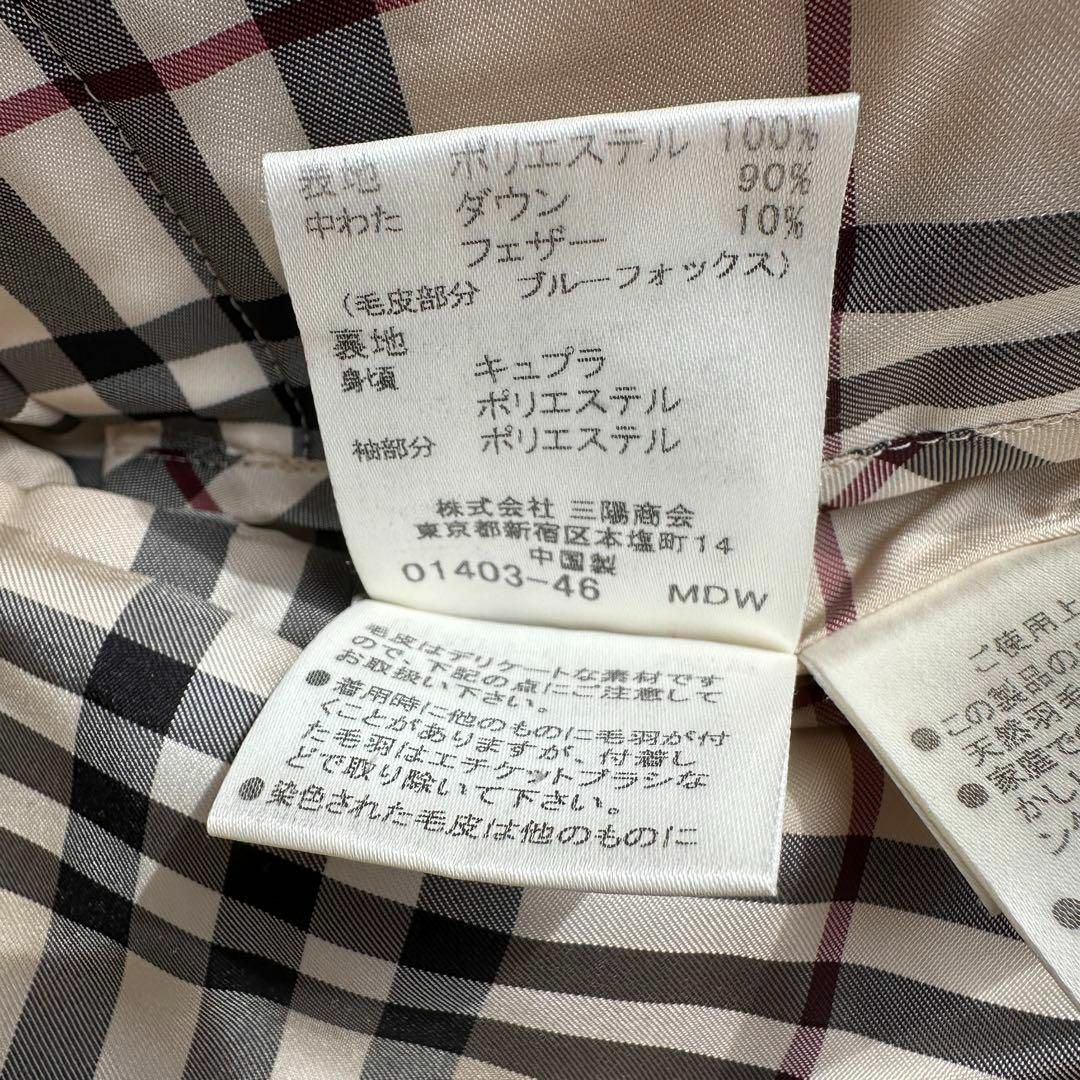 表地 ポリエステル 100%
中わた ダウン 90%
フェザー 10%
(毛皮部分 ブルーフォックス)
裏地
身頃 キュプラ
ポリエステル
袖部分 ポリエステル
株式会社 三陽商会
東京都新宿区本塩町14
中国製
01403-46 MDW
毛皮はデリケートな素材です
ので、下記の点にご注意して
お取扱い下さい。
●着用時に他のものに毛羽が付
くことがありますが、付着し
た毛羽はエチケットブラシな
どで取り除いて下さい。
●染色された毛皮は他のものに
ご使用上
●この製品の
天然羽毛
●家庭で
かし